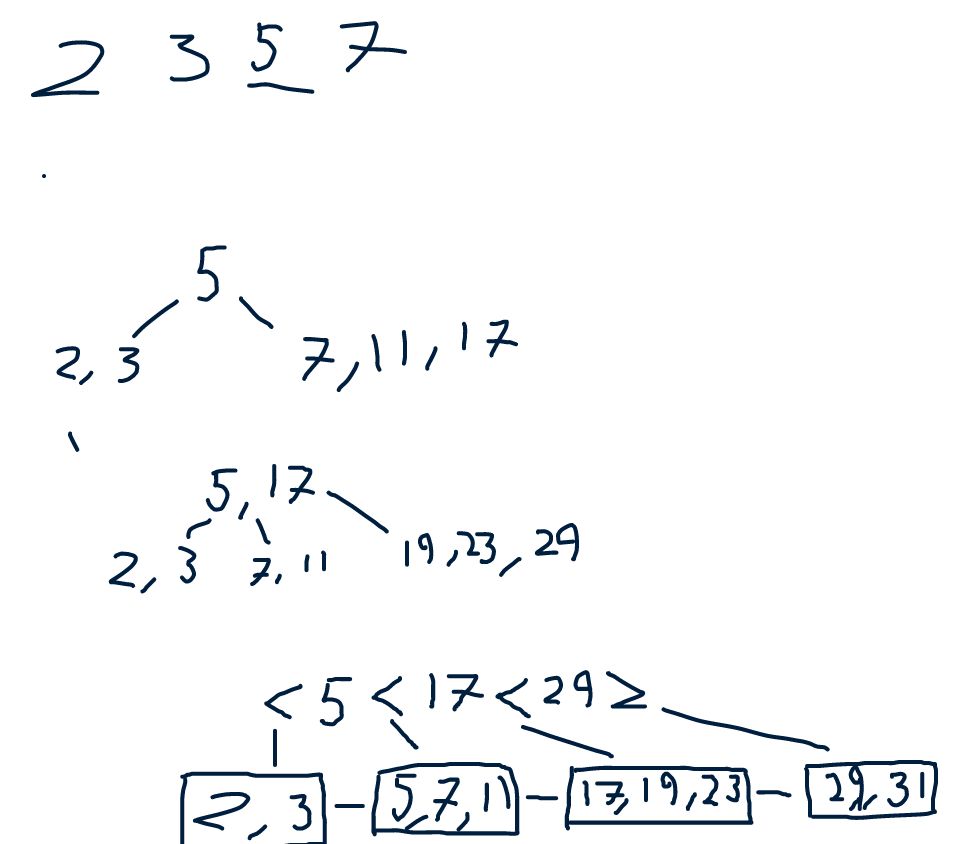 2 3 5 7
5
2, 3 7, 11, 17
5, 17
2, 3 7, 11 19, 23, 29
< 5 < 17 < 29 ≥
2, 3 5, 7, 11 17, 19, 23 29, 31